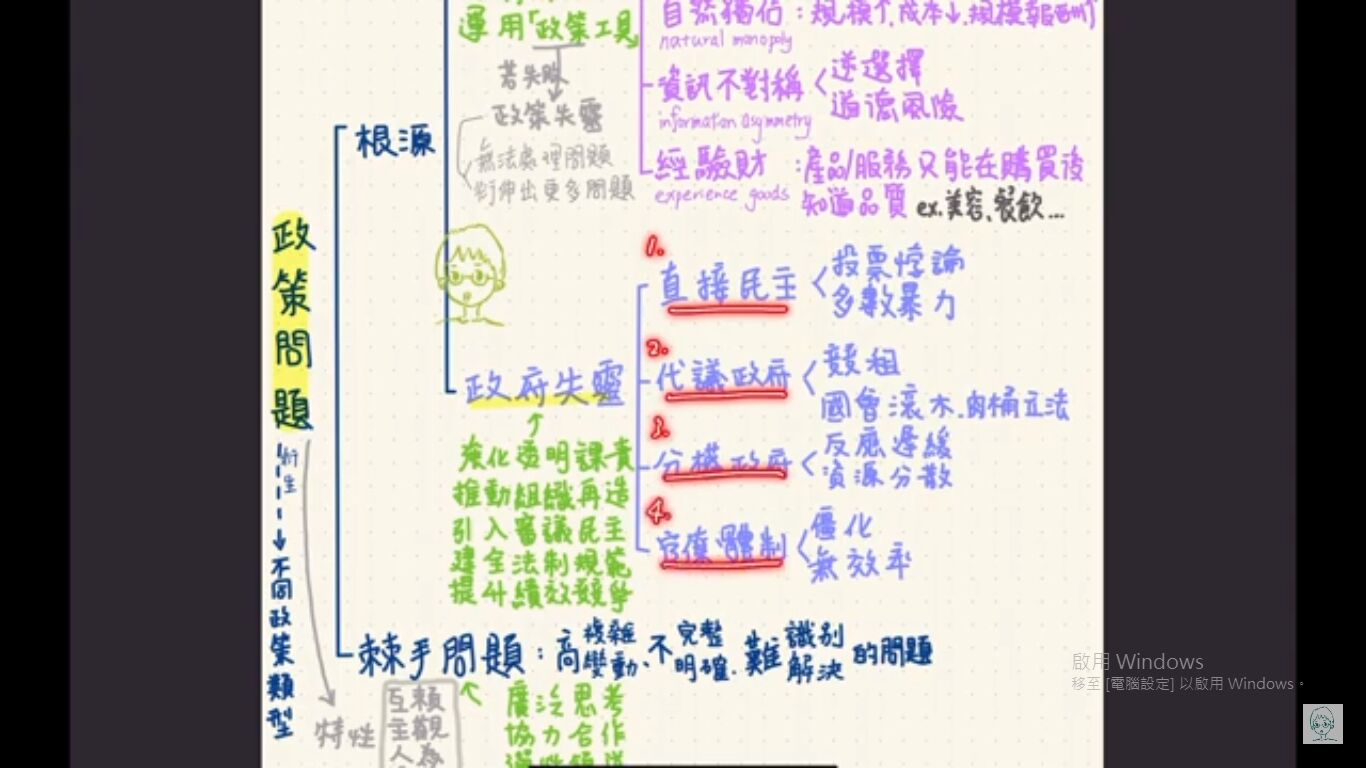 運用「政策工具」
若失敗
政策失靈
無法處理問題
衍伸出更多問題
自然獨佔：規模↑,成本↓,規模報酬↑
natural monopoly
資訊不對稱
information asymmetry
逆選擇
道德風險
經驗財：產品/服務只能在購買後
experience goods
知道品質 ex.美容、餐飲...
政策問題
根源
政府失靈
1.
直接民主
投票悖論
多數暴力
2.
代議政府
競租
國會滾木.肉桶立法
3.
分權政府
反應遲緩
資源分散
4.
官僚體制
僵化
無效率
強化透明課責
推動組織再造
引入審議民主
建全法制規範
提升績效競爭
棘手問題：高複雜變動、不完整明確.難識別解決的問題
衍生
不同政策類型
特性
互賴
主觀
人為
廣泛思考
協力合作
啟用 Windows
移至 [電腦設定] 以啟用 Windows。